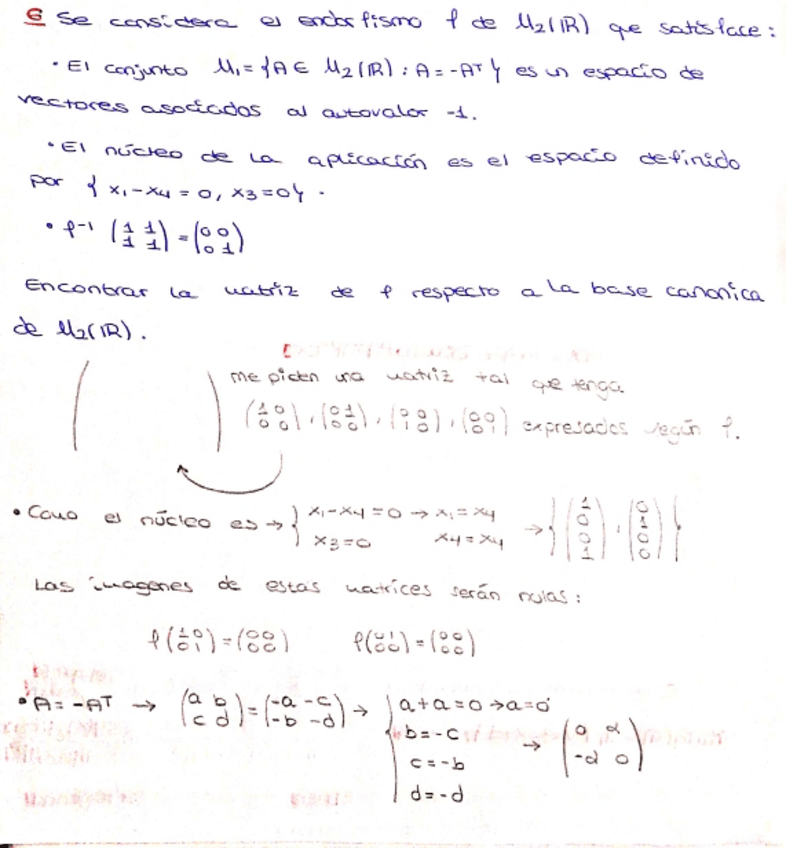 6 Se considera el endorfismo f de M₂(ℝ) que satisface:
• El conjunto M₁ = {A ∈ M₂(ℝ) : A = -Aᵀ} es un espacio de
vectores asociados al autovalor -1.
• El núcleo de la aplicación es el espacio definido
por { x₁-x₄ = 0, x₃=0}.
• f⁻¹ (1 1 / 1 1) = (0 0 / 0 1)
Encontrar la matriz de f respecto a la base canonica
de M₂(ℝ).
me piden una matriz tal que tenga
(1 0 / 0 0), (0 1 / 0 0), (0 0 / 1 0), (0 0 / 0 1) expresados según f.
• Como el núcleo es → { x₁-x₄ = 0 → x₁ = x₄ / x₃ = 0 x₄ = x₄ → { (1 / 0 / 0 / 1), (0 / 1 / 0 / 0) }
Las imagenes de estas matrices serán nulas:
f(1 0 / 0 1) = (0 0 / 0 0) f(0 1 / 0 0) = (0 0 / 0 0)
• A = -Aᵀ → (a b / c d) = (-a -c / -b -d) → { a + a = 0 → a = 0
b = -c
c = -b
d = -d
→ (0 α / -α 0)